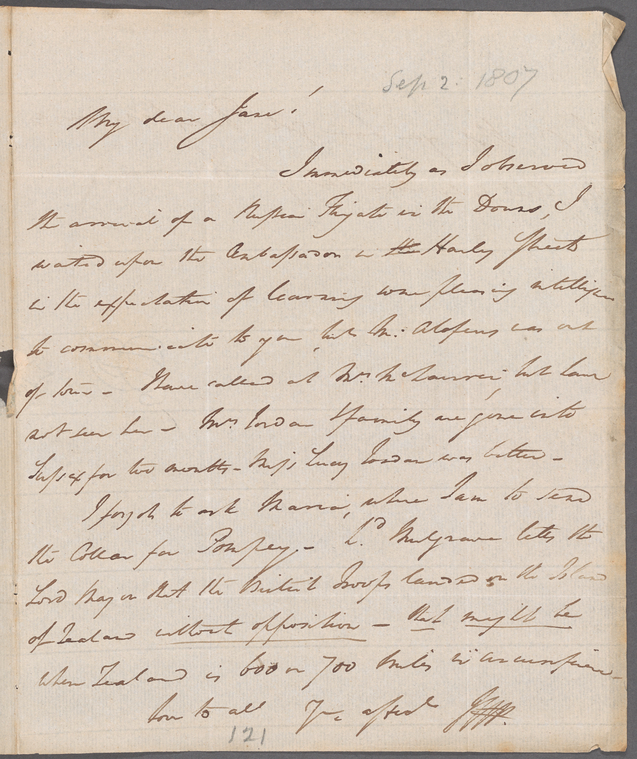 Sep 2: 1807
My dear Jane!
Immediately as I observed
the arrival of a Russian Frigate in the Downs, I
waited upon the Embassador in the Harley Street
in the expectation of learning some pleasing intelligence
to communicate to you, but Mr: Alopeus was out
of town - Have called at Mrs. but have
not seen her - Mrs Jordan & family are gone into
Sussex for two months - Miss Lucy Jordan was better -
I forgot to ask Maria, where I am to send
the Collar for Pompey - Ld. Mulgrave tells the
Lord Mayor that the British Troops landed on the Island
of Zealand without opposition - that might be
when Zealand is 600 or 700 miles in circumference -
love to all Yrs affecte
121